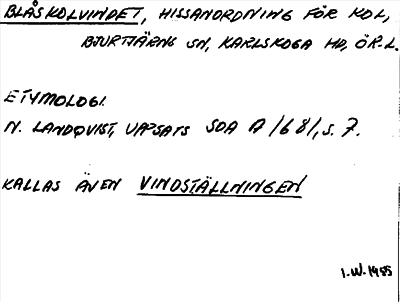 BLÅSKOLVINDET, HISSANORDNING FÖR KOL,
BJURTJÄRNS SN, KARLSKOGA HD, ÖR.L.
ETYMOLOGI.
N. LANDQVIST, UPPSATS SOA A/68/, S. 7.
KALLAS ÄVEN VINDSTÄLLNINGEN
I.W. 1955